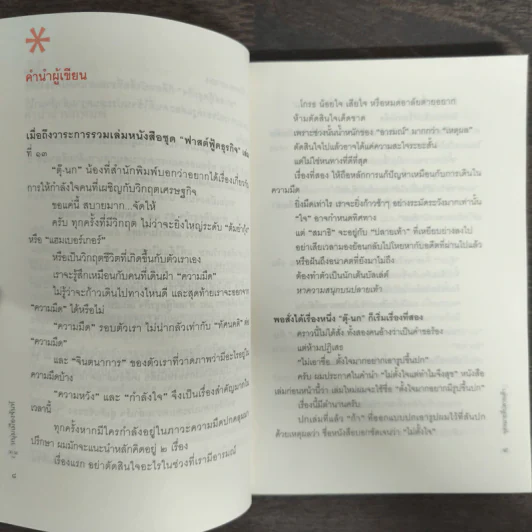 คำนำผู้เขียน
เมื่อถึงวาระการรวมเล่มหนังสือชุด “ฟาสต์ฟู้ดธุรกิจ” เล่ม
ที่ ๑๓
“ตุ้-นก” น้องที่สำนักพิมพ์บอกว่าอยากได้เรื่องเกี่ยวกับ
การให้กำลังใจคนที่เผชิญกับวิกฤตเศรษฐกิจ
ขอแค่นี้ สบายมาก...จัดให้
ครับ ทุกครั้งที่มีวิกฤต ไม่ว่าจะยิ่งใหญ่ระดับ “ต้มยำกุ้ง”
หรือ “แฮมเบอร์เกอร์”
หรือเป็นวิกฤตชีวิตที่เกิดขึ้นกับตัวเราเอง
เราจะรู้สึกเหมือนกับคนที่เดินฝ่า “ความมืด”
ไม่รู้ว่าจะก้าวเดินไปทางไหนดี และสุดท้ายเราจะออกจาก
“ความมืด” ได้หรือไม่
“ความมืด” รอบตัวเรา ไม่น่ากลัวเท่ากับ “ทัศนคติ” ต่อ
“ความมืด”
และ “จินตนาการ” ของตัวเราที่วาดภาพว่ามีอะไรอยู่ใน
ความมืดบ้าง
“ความหวัง” และ “กำลังใจ” จึงเป็นเรื่องสำคัญมากใน
เวลานี้
ทุกครั้งหากมีใครกำลังอยู่ในภาวะความมืดปกคลุมมา
ปรึกษา ผมมักจะแนะนำหลักคิดอยู่ ๒ เรื่อง
เรื่องแรก อย่าตัดสินใจอะไรในช่วงที่เรามีอารมณ์
๘
หนุ่มเมืองจันท์
...โกรธ น้อยใจ เสียใจ หรือหมดอาลัยตายอยาก
ห้ามตัดสินใจเด็ดขาด
เพราะช่วงนั้นน้ำหนักของ “อารมณ์” มากกว่า “เหตุผล”
ตัดสินใจไปแล้วอาจได้แค่ความสะใจระยะสั้น
แต่ไม่ใช่หนทางที่ดีที่สุด
เรื่องที่สอง ให้ถือหลักการแก้ปัญหาเหมือนกับการเดินใน
ความมืด
ยิ่งมืดเท่าไร เราจะยิ่งก้าวช้าๆ อย่างระมัดระวังมากเท่านั้น
“ใจ” อาจกำหนดทิศทาง
แต่ “สมาธิ” จะอยู่กับ “ปลายเท้า” ที่เหยียบย่างลงไป
อย่าเสียเวลามองย้อนกลับไปไหยหากับอดีตที่ผ่านไปแล้ว
หรือฝันถึงอนาคตที่ยังมาไม่ถึง
ต้องทำตัวเป็นนักเต้นบัลเลต์
หาความสนุกบนปลายเท้า
พอสั่งได้เรื่องหนึ่ง “ตุ้-นก” ก็เริ่มเรื่องที่สอง
คราวนี้ไม่ได้สั่ง ทั้งสองคนอ้างว่าเป็นคำขอร้อง
แต่ห้ามปฏิเสธ
“ไม่เอาชื่อ...ตั้งใจมากอย่าเอารูปขึ้นปก”
ครับ ผมประกาศในคำนำ “ไม่ตั้งใจแต่ทำไมจึงสุข” หนังสือ
เล่มก่อนหน้านี้ว่า เล่มใหม่ผมจะใช้ชื่อ “ตั้งใจมากอยากมีรูปขึ้นปก”
เรื่องนี้มีตำนานครับ
ปกเล่มที่แล้ว “ก้า” ที่ออกแบบปกเอารูปผมไว้ที่สันปก
ด้วยเหตุผลว่า ชื่อหนังสือบอกชัดเจนว่า “ไม่ตั้งใจ”